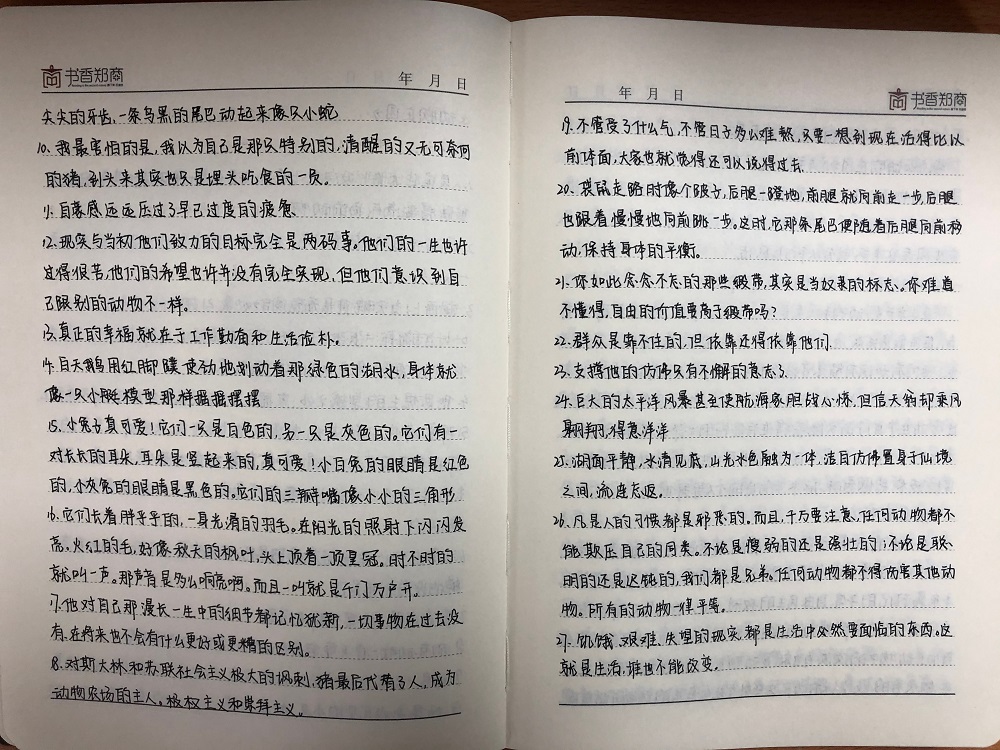 书香郑商
年 月 日
尖尖的牙齿,一条乌黑的尾巴动起来像只小蛇
10. 我最害怕的是,我以为自己是那只特别的,清醒的又无可奈何
的猪,到头来其实也只是埋头吃食的一员。
11. 自豪感远远压过了早已过度的疲惫
12. 现实与当初他们致力的目标完全是两码事。他们的一生也许
过得很苦,他们的希望也许并没有完全实现,但他们意识到自
己跟别的动物不一样。
13. 真正的幸福就在于工作勤奋和生活俭朴。
14. 白天鹅用红脚蹼使劲地划动着那绿色的湖水,身体就
像一只小艇模型那样摇摇摆摆
15. 小兔子真可爱!它们一只是白色的,另一只是灰色的。它们有一
对长长的耳朵,耳朵是竖起来的,真可爱!小白兔的眼睛是红色
的,小灰兔的眼睛是黑色的。它们的三瓣嘴像小小的三角形
16. 它们长着胖乎乎的,一身光滑的羽毛。在阳光的照射下闪闪发
亮。火红的毛,好像秋天的枫叶,头上顶着一顶皇冠。时不时的
就叫一声。那声音是多么响亮啊。而且一叫就是千门万户开。
17. 他对自己那漫长一生中的细节都记忆犹新,一切事物在过去没
有,在将来也不会有什么更好或更糟的区别。
18. 对斯大林和苏联社会主义极大的讽刺,猪最后代替了人,成为
动物农场的主人。极权主义和崇拜主义。
年 月 日
书香郑商
19. 不管受了什么气,不管日子多么难熬,只要一想到现在活得比以
前体面,大家也就觉得还可以说得过去
20. 袋鼠走路时像个跛子,后腿一蹬地,前腿就向前走一步,后腿
也跟着慢慢地向前跳一步。这时,它那条尾巴便随着后腿向前移
动,保持身体的平衡。
21. 你如此念念不忘的那些缎带,其实是当奴隶的标志。你难道
不懂得,自由的价值要高于缎带吗?
22. 群众是靠不住的,但依靠还得依靠他们
23. 支撑他的仿佛只有不懈的意志了
24. 巨大的太平洋风暴甚至使航海家胆战心惊,但信天翁却乘风
翱翔,得意洋洋
25. 湖面平静,水清见底,山光水色融为一体,洁白仿佛置身于仙境
之间,流连忘返。
26. 凡是人的习惯都是邪恶的。而且,千万要注意,任何动物都不
能欺压自己的同类。不论是瘦弱的还是强壮的;不论是聪
明的还是迟钝的,我们都是兄弟。任何动物都不得伤害其他动
物。所有的动物一律平等。
27. 饥饿、艰难、失望的现实,都是生活中必然要面临的东西。这
就是生活,谁也不能改变。